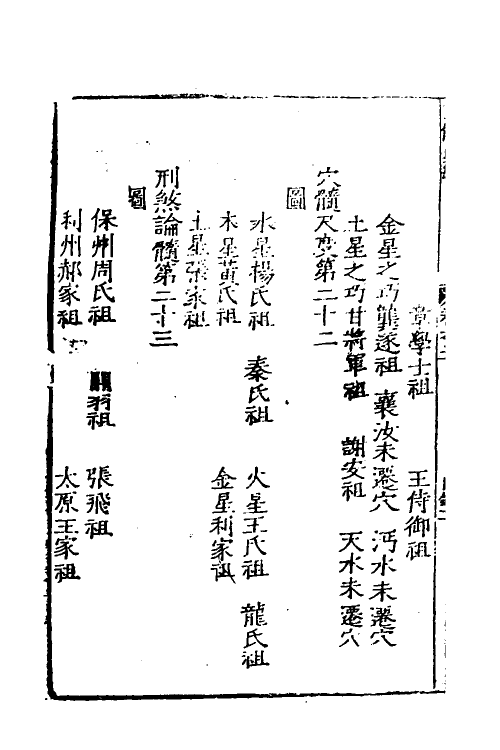 章學士祖 王侍御祖
金星之巧龔逐祖 襄汝未遷穴 沔水未遷穴
土星之巧甘將軍祖 謝安祖 天水未遷穴
穴髓尺變第二十二
圖
水星楊氏祖 秦氏祖 火星王氏祖 龍氏祖
木星黃氏祖 金星利家祖
土星張家祖
刑煞論髓第二十三
圖
保州周氏祖 羽祖 張飛祖
利州郝家祖 太原王家祖